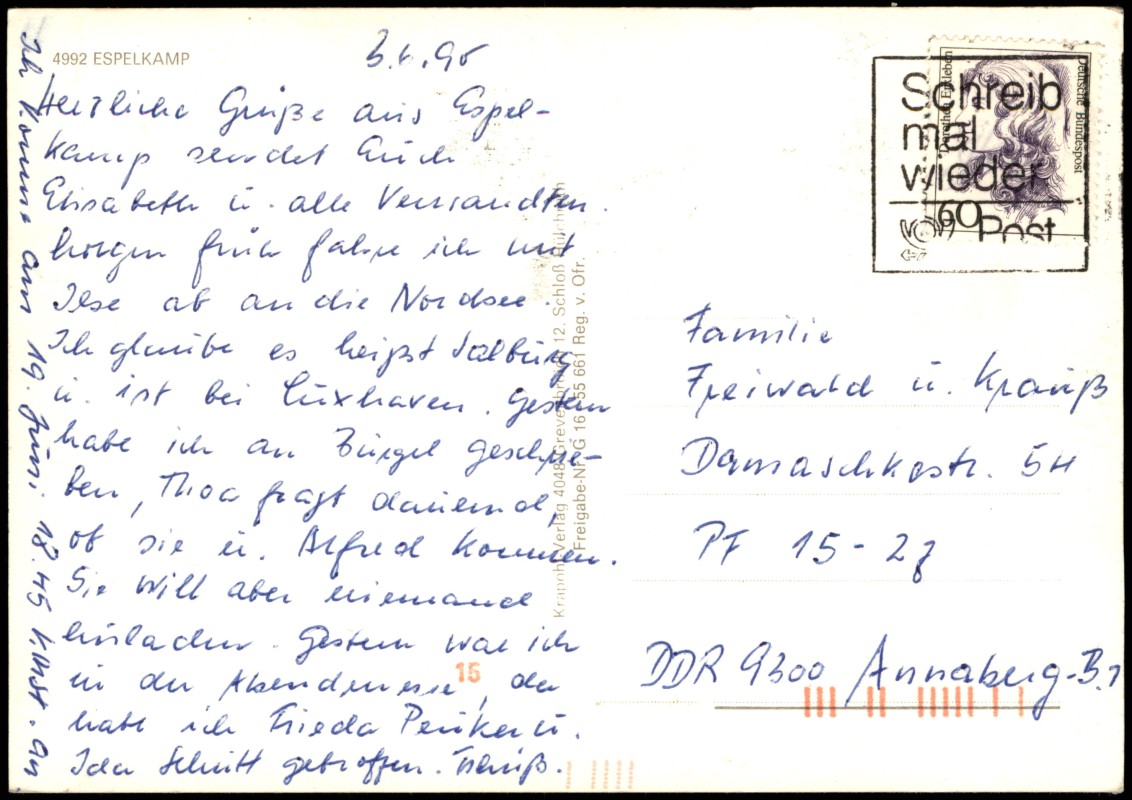 4992 ESPELKAMP
3.6.90
Herzliche Grüße aus Espel-
kamp sendet Euch
Elisabeth u. alle Verwandten.
Morgen früh fahre ich mit
Ilse ab an die Nordsee.
Ich glaube es heißt Salburg
u. ist bei Cuxhaven. Gestern
habe ich an Bürgel geschrie-
ben, Thea fragt dauernd,
ob sie u. Alfred kommen.
Sie will aber niemand
einladen. Gestern war ich
in der Abendmesse, da
habe ich Frieda Peuker u.
Ida Schmitt getroffen. Tschüß.
Ich komme am 19. Juni 18.45 Uhr an
Krapohl-Verlag 4048 Grevenbroich 12. Schloß
Freigabe-Nr. OG 16 55 661 Reg. v. Ofr.
Schreib
mal
wieder
Post
Deutsche Bundespost
60
Familie
Freiwald u. Krauß
Damaschkestr. 54
PF 15-27
DDR 9300 Annaberg-B. 1
15